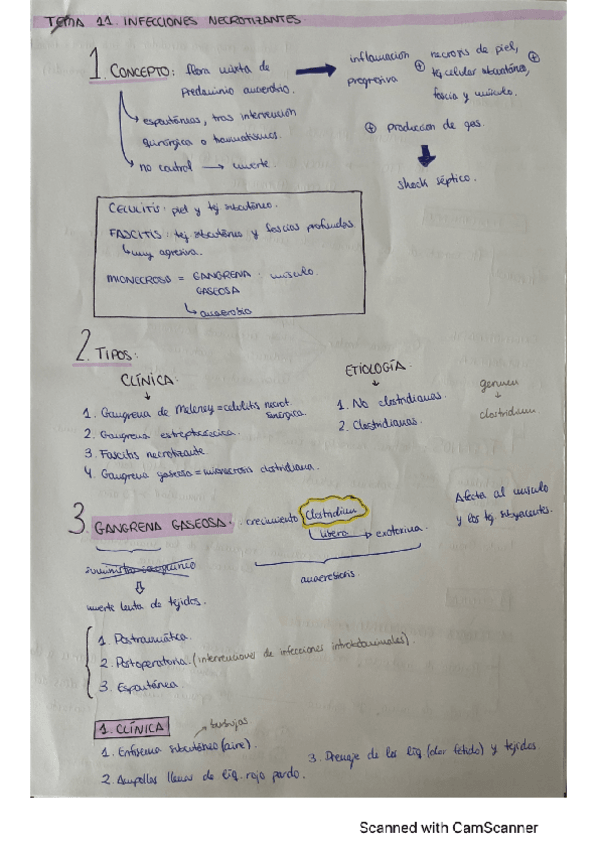 TEMA 11. INFECCIONES NECROTIZANTES
1. CONCEPTO: flora mixta de
predominio anaerobio.
inflamación
progresiva
⊕ necrosis de piel, ⊕
tej celular subcutáneo,
fascia y músculo.
⊕ Producción de gas.
shock séptico.
espontáneas, tras intervención
quirúrgica o traumatismos.
no control → muerte
CELULITIS: piel y tej subcutáneo.
FASCITIS: tej subcutáneo y fascias profundas
muy agresiva.
MIONECROSIS = GANGRENA músculo
GASEOSA
anaerobio
2. TIPOS:
CLÍNICA:
1. Gangrena de Meleney = celulitis necrot
sinérgica.
2. Gangrena estreptocócica.
3. Fascitis necrotizante.
4. Gangrena gaseosa = mionecrosis clostridiana.
ETIOLOGÍA:
1. No clostridianas.
2. Clostridianas.
germen
clostridium
3. GANGRENA GASEOSA: crecimiento Clostridium
libera → exotoxina.
anaerobios.
Afecta al músculo
y los tej. subyacentes.
suministro sanguíneo
muerte lenta de tejidos.
1. Postraumática.
2. Postoperatoria. (intervenciones de infecciones intrabdominales).
3. Espontánea.
1. CLÍNICA
burbujas
1. Enfisema subcutáneo (aire).
2. Ampollas llenas de líq. rojo pardo.
3. Drenaje de los líq. (olor fétido) y tejidos
Scanned with CamScanner